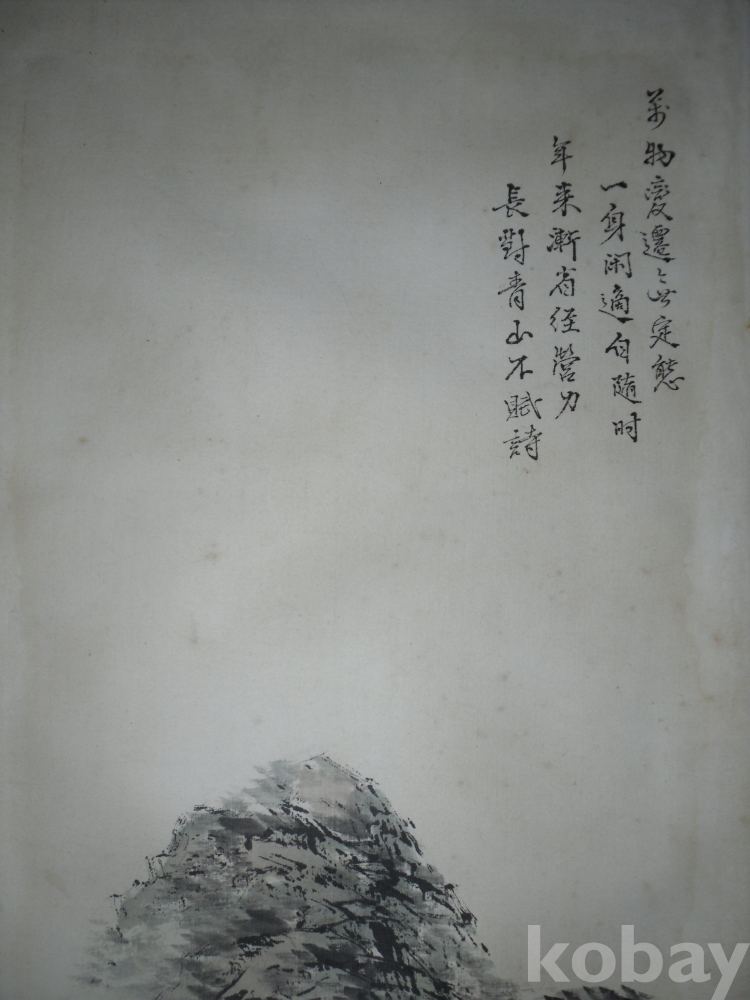 萬物變遷無定態
一身閑適自隨时
年来漸省經營力
長對青山不賦詩
kobay